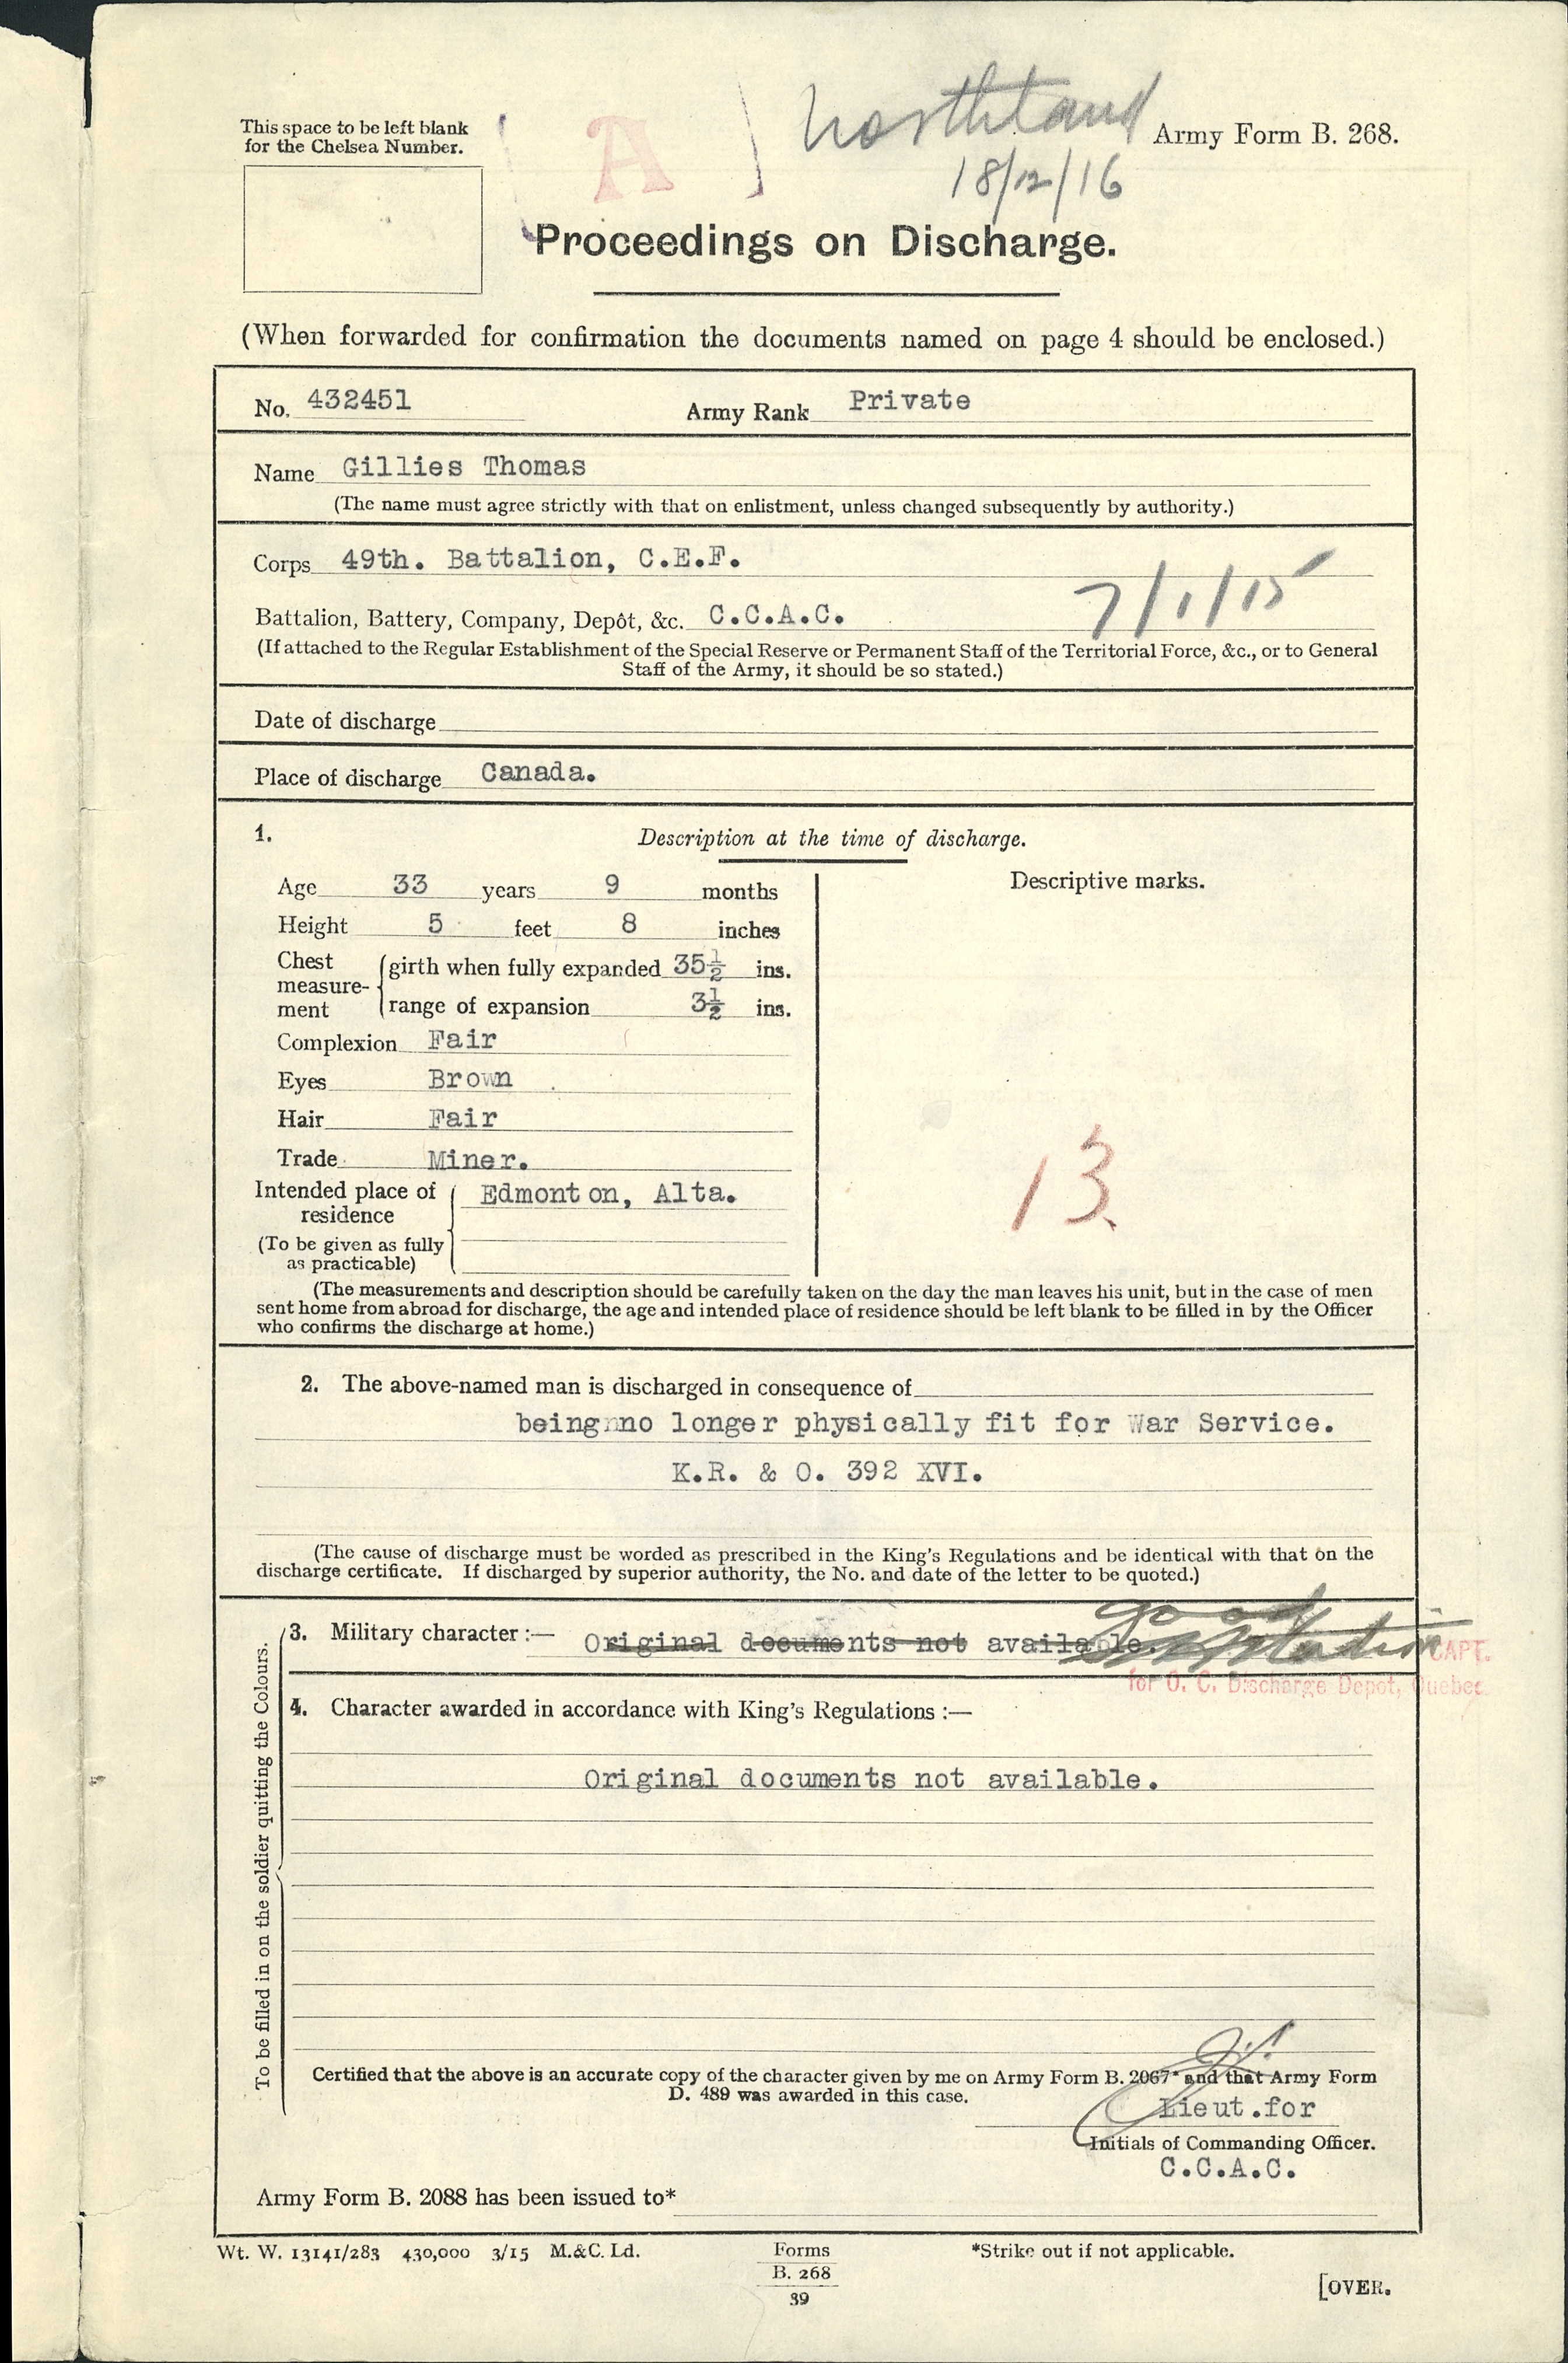 This space to be left blank
for the Chelsea Number.
A
Northland
18/12/16
Army Form B. 268.
Proceedings on Discharge.
(When forwarded for confirmation the documents named on page 4 should be enclosed.)
No. 432451 Army Rank Private
Name Gillies Thomas
(The name must agree strictly with that on enlistment, unless changed subsequently by authority.)
Corps 49th. Battalion, C.E.F.
7/1/15
Battalion, Battery, Company, Depôt, &c. C.C.A.C.
(If attached to the Regular Establishment of the Special Reserve or Permanent Staff of the Territorial Force, &c., or to General
Staff of the Army, it should be so stated.)
Date of discharge
Place of discharge Canada.
1. Description at the time of discharge.
Age 33 years 9 months
Height 5 feet 8 inches
Chest measurement
girth when fully expanded 35½ ins.
range of expansion 3½ ins.
Complexion Fair
Eyes Brown
Hair Fair
Trade Miner.
Intended place of residence Edmonton, Alta.
(To be given as fully
as practicable)
Descriptive marks.
13
(The measurements and description should be carefully taken on the day the man leaves his unit, but in the case of men
sent home from abroad for discharge, the age and intended place of residence should be left blank to be filled in by the Officer
who confirms the discharge at home.)
2. The above-named man is discharged in consequence of
being no longer physically fit for War Service.
K.R. & O. 392 XVI.
(The cause of discharge must be worded as prescribed in the King's Regulations and be identical with that on the
discharge certificate. If discharged by superior authority, the No. and date of the letter to be quoted.)
To be filled in on the soldier quitting the Colours.
3. Military character :— Original documents not available.
good
CAPT.
for O. C. Discharge Depot, Quebec
4. Character awarded in accordance with King's Regulations :—
Original documents not available.
Certified that the above is an accurate copy of the character given by me on Army Form B. 2067* and that Army Form
D. 489 was awarded in this case.
Lieut.for
Initials of Commanding Officer.
C.C.A.C.
Army Form B. 2088 has been issued to*
Wt. W. 13141/283 430,000 3/15 M.&C. Ld.
Forms
B. 268
39
*Strike out if not applicable.
[OVER.